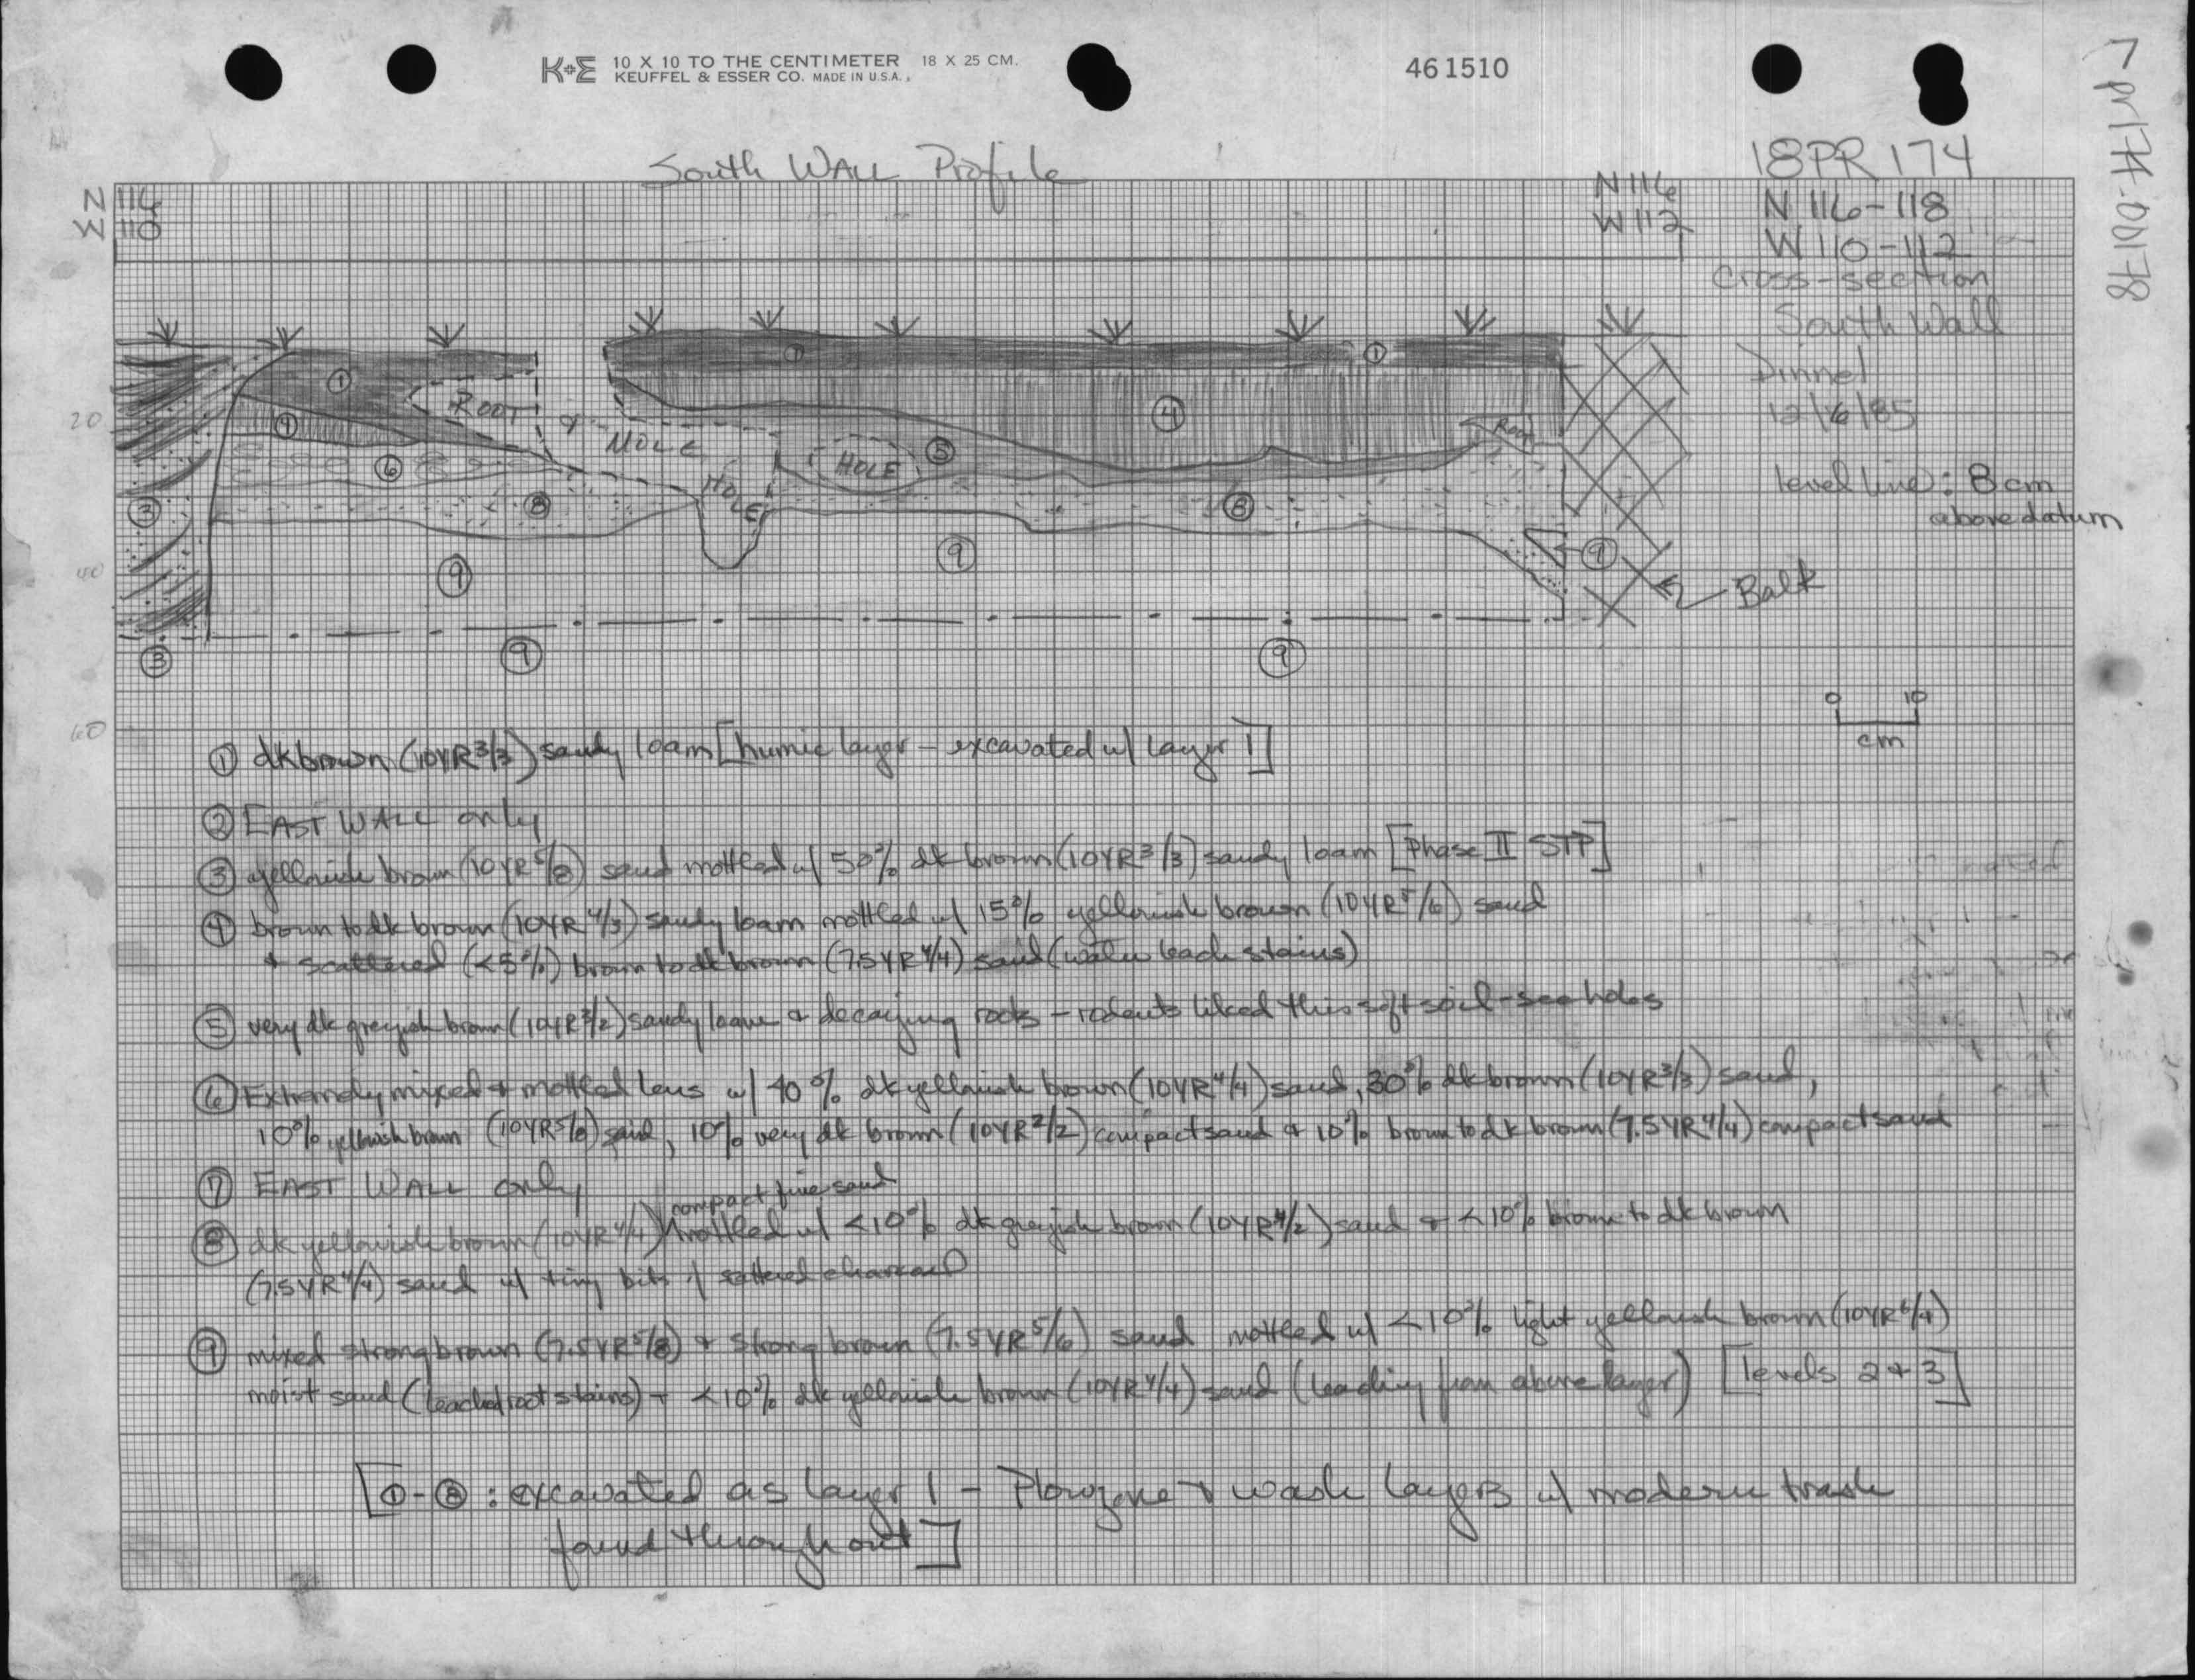 K+E 10 X 10 TO THE CENTIMETER 18 X 25 CM.
KEUFFEL & ESSER CO. MADE IN U.S.A.
461510
7-pr174-00178
South Wall Profile
18PR174
N116-118
W110-112
Cross-section
South Wall
Dinnel
12/6/85
level line: 8cm
above datum
N116
W110
N116
W112
20
40
60
1
1
1
ROOT
&
MOLE
HOLE
HOLE
Root
4
4
5
6
8
8
3
9
9
9
Balk
3
9
9
0 10
cm
① dk brown (10YR 3/3) sandy loam [humic layer - excavated w/ layer 1]
② EAST WALL only
③ yellowish brown (10YR 5/8) sand mottled w/ 50% dk brown (10YR 3/3) sandy loam [Phase II STP]
④ brown to dk brown (10YR 4/3) sandy loam mottled w/ 15% yellowish brown (10YR 5/6) sand
+ scattered (<5%) brown to dk brown (7.5YR 4/4) sand (water leach stains)
⑤ very dk greyish brown (10YR 3/2) sandy loam & decaying roots - rodents liked this soft soil - see holes
⑥ Extremely mixed + mottled lens w/ 40% dk yellowish brown (10YR 4/4) sand, 30% dk brown (10YR 3/3) sand,
10% yellowish brown (10YR 5/8) sand, 10% very dk brown (10YR 2/2) compact sand & 10% brown to dk brown (7.5YR 4/4) compact sand
⑦ EAST WALL only
compact fine sand
⑧ dk yellowish brown (10YR 4/4) mottled w/ <10% dk greyish brown (10YR 4/2) sand & <10% brown to dk brown
(7.5YR 4/4) sand w/ tiny bits of scattered charcoal
⑨ mixed strong brown (7.5YR 5/8) & strong brown (7.5YR 5/6) sand mottled w/ <10% light yellowish brown (10YR 6/4)
moist sand (leached root stains) + <10% dk yellowish brown (10YR 4/4) sand (leaching from above layer) [levels 2+3]
[①-⑧: excavated as layer 1 - Plowzone + wash layers w/ modern trash
found throughout]